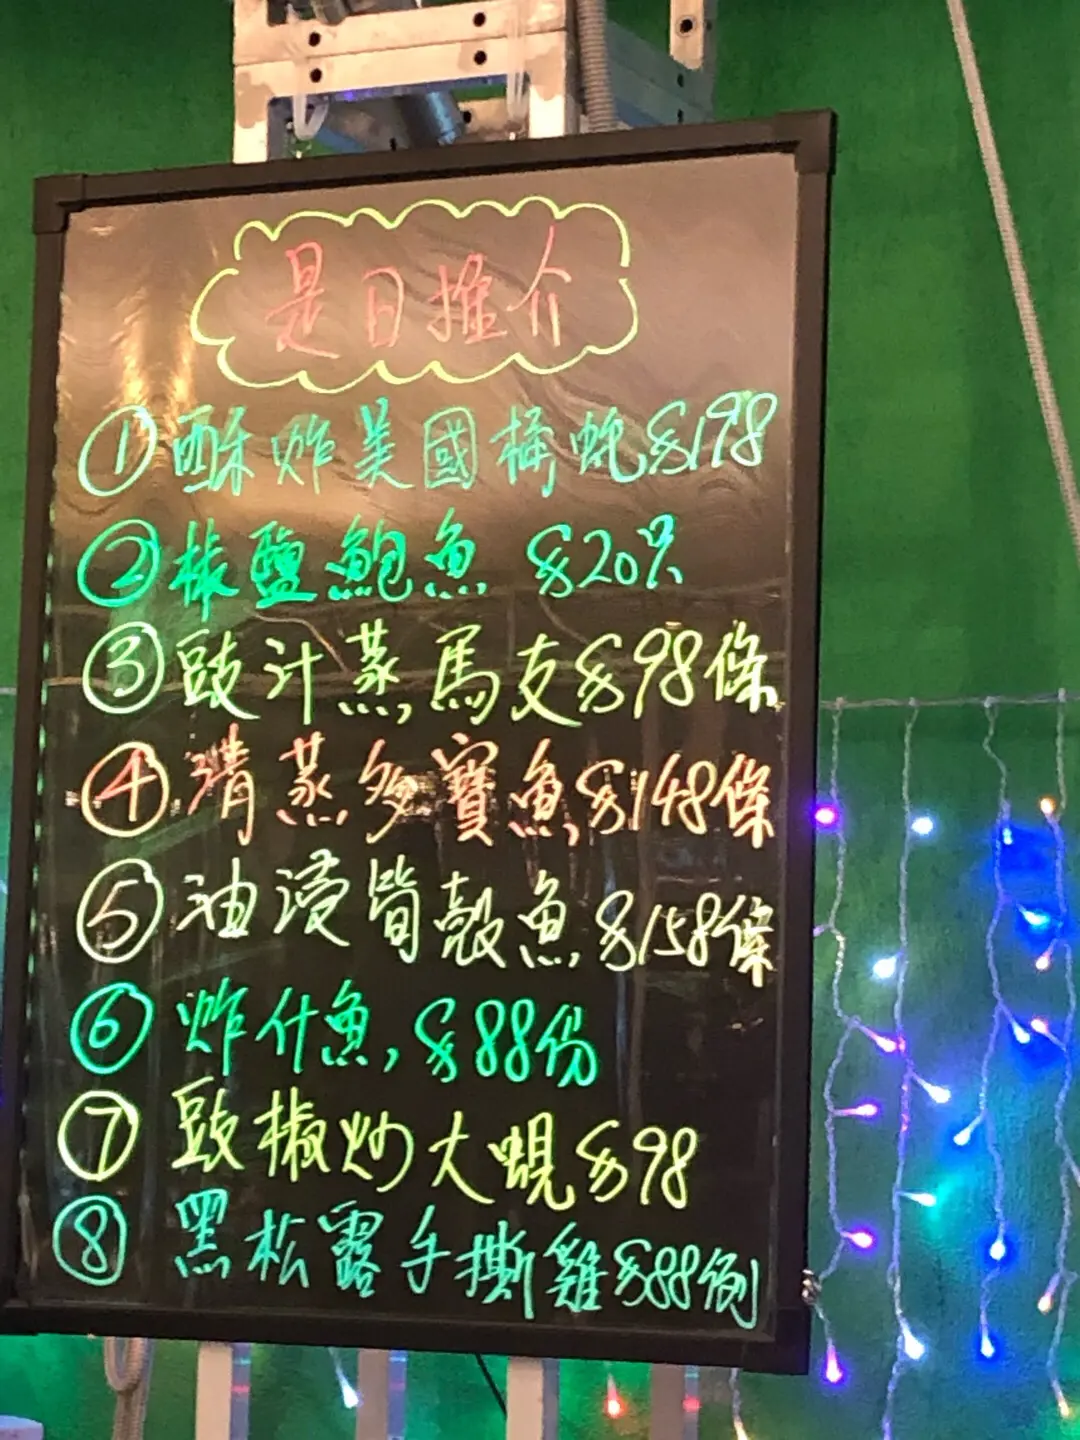 是日推介
① 酥炸美國桶蚝 $198
② 椒鹽鮑魚 $20只
③ 豉汁蒸馬友 $98條
④ 清蒸多寶魚 $148條
⑤ 油浸筍殼魚 $158條
⑥ 炸什魚, $88份
⑦ 豉椒炒大蜆 $98
⑧ 黑松露手撕雞 $88例